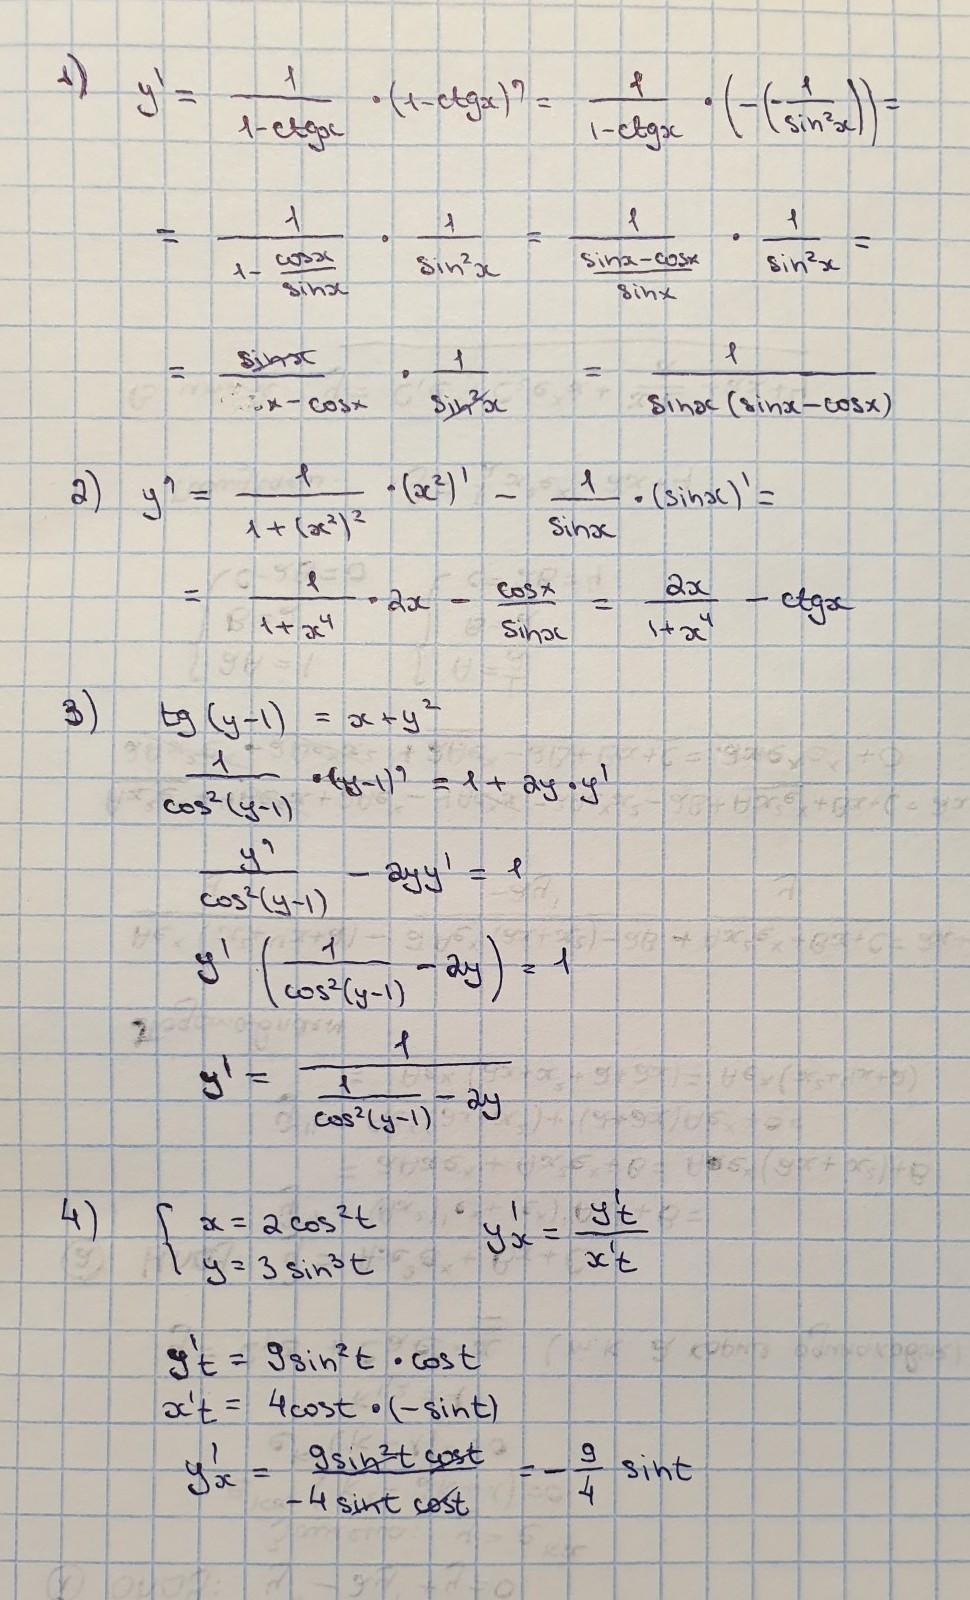 1) y' = 1/(1-ctgx) · (1-ctgx)' = 1/(1-ctgx) · (-(-1/sin²x)) =
= 1/(1 - cosx/sinx) · 1/sin²x = 1/((sinx-cosx)/sinx) · 1/sin²x =
= sinx/(x-cosx) · 1/sin²x = 1/(sinx(sinx-cosx))
2) y' = 1/(1+(x²)²) · (x²)' - 1/sinx · (sinx)' =
= 1/(1+x⁴) · 2x - cosx/sinx = 2x/(1+x⁴) - ctgx
3) tg(y-1) = x+y²
1/cos²(y-1) · (y-1)' = 1 + 2y·y'
y'/cos²(y-1) - 2yy' = 1
y' (1/cos²(y-1) - 2y) = 1
y' = 1/(1/cos²(y-1) - 2y)
4) { x = 2cos²t y'x = y't/x't
y = 3sin³t
y't = 9sin²t · cost
x't = 4cost · (-sint)
y'x = 9sin²t cost/(-4sint cost) = -9/4 sint